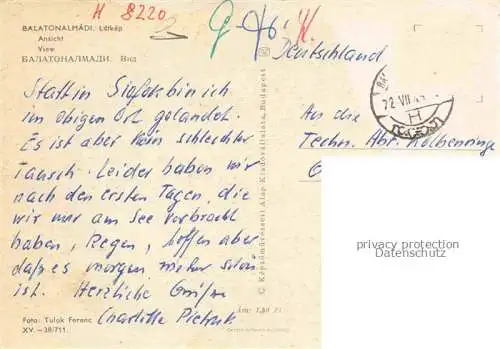 H 8220
BALATONALMÁDI. Látkép
Ansicht
View
БАЛАТОНАЛМАДИ. Вид
Statt in Siofok bin ich
im obigen Ort gelandet.
Es ist aber kein schlechter
Tausch. Leider haben wir
nach den ersten Tagen, die
wir nur am See verbracht
haben, Regen, hoffen aber
daß es morgen mehr schön
ist. Herzliche Grüße
Charlotte
Foto: Tulok Ferenc
XV.-38/711.
Ára: 1,80 Ft
© Képzőművészeti Alap Kiadóvállalata, Budapest
Deutschland
22 VII
H
An die
Techn. Abt. Kolbenringe
privacy protection
Datenschutz